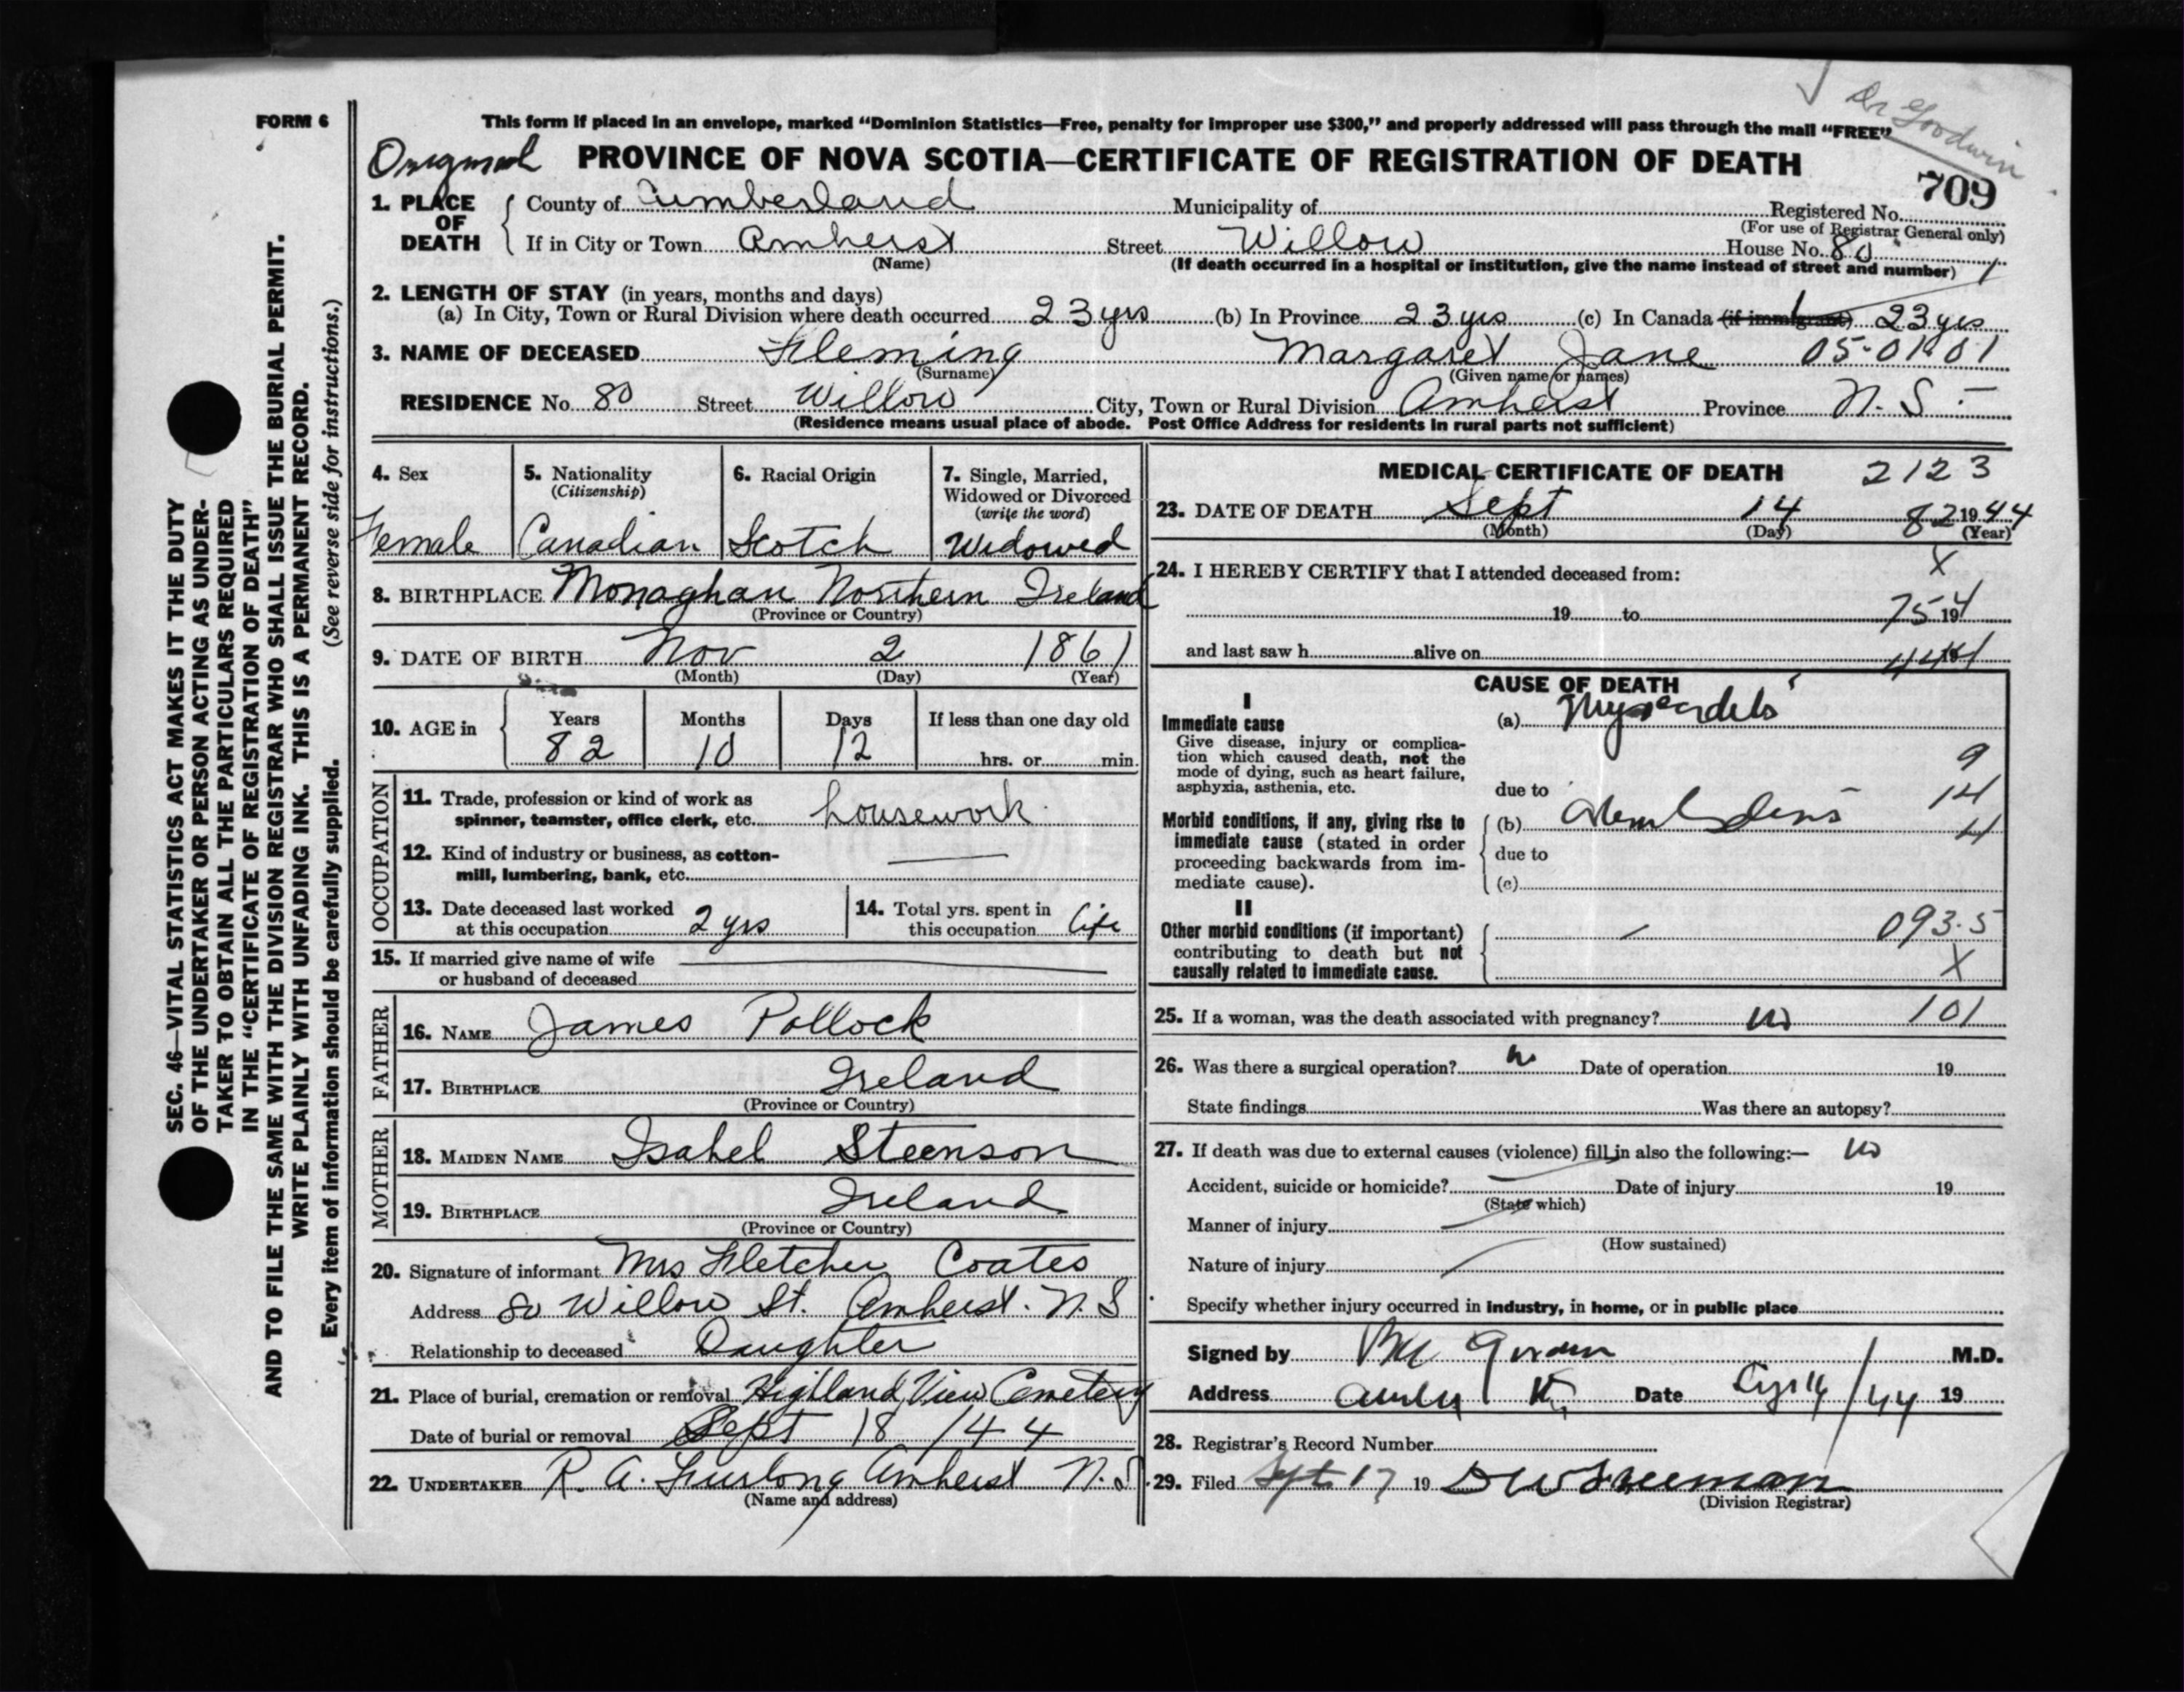 Dr Goodwin
FORM 6
This form if placed in an envelope, marked “Dominion Statistics—Free, penalty for improper use $300,” and properly addressed will pass through the mail “FREE”
Original PROVINCE OF NOVA SCOTIA—CERTIFICATE OF REGISTRATION OF DEATH
709
1. PLACE OF DEATH
County of Cumberland Municipality of Registered No.
(For use of Registrar General only)
If in City or Town Amherst Street Willow House No. 80
(Name) (If death occurred in a hospital or institution, give the name instead of street and number) 1
2. LENGTH OF STAY (in years, months and days)
(a) In City, Town or Rural Division where death occurred 23 yrs (b) In Province 23 yrs (c) In Canada (if immigrant) 23 yrs
3. NAME OF DECEASED Fleming Margaret Jane 05-01001
(Surname) (Given name or names)
RESIDENCE No. 80 Street Willow City, Town or Rural Division Amherst Province N.S.
(Residence means usual place of abode. Post Office Address for residents in rural parts not sufficient)
4. Sex
Female
5. Nationality
(Citizenship)
Canadian
6. Racial Origin
Scotch
7. Single, Married,
Widowed or Divorced
(write the word)
Widowed
8. BIRTHPLACE Monaghan Northern Ireland
(Province or Country)
9. DATE OF BIRTH Nov 2 1861
(Month) (Day) (Year)
10. AGE in
Years Months Days If less than one day old
82 10 12 hrs. or min.
OCCUPATION
11. Trade, profession or kind of work as
spinner, teamster, office clerk, etc. housework
12. Kind of industry or business, as cotton-
mill, lumbering, bank, etc.
13. Date deceased last worked
at this occupation 2 yrs
14. Total yrs. spent in
this occupation life
15. If married give name of wife
or husband of deceased
FATHER
16. NAME James Pollock
17. BIRTHPLACE Ireland
(Province or Country)
MOTHER
18. MAIDEN NAME Isabel Steenson
19. BIRTHPLACE Ireland
(Province or Country)
20. Signature of informant Mrs Fletcher Coates
Address 80 Willow St. Amherst. N.S
Relationship to deceased Daughter
21. Place of burial, cremation or removal Highland View Cemetery
Date of burial or removal Sept 18 /44
22. UNDERTAKER R. A. Furlong Amherst N.S.
(Name and address)
MEDICAL CERTIFICATE OF DEATH 2123
23. DATE OF DEATH Sept 14 82 1944
(Month) (Day) (Year)
24. I HEREBY CERTIFY that I attended deceased from: X
19 to 75 194
and last saw h alive on
CAUSE OF DEATH
I
Immediate cause
Give disease, injury or complica-
tion which caused death, not the
mode of dying, such as heart failure,
asphyxia, asthenia, etc.
(a)
9
due to
14
Morbid conditions, if any, giving rise to
immediate cause (stated in order
proceeding backwards from im-
mediate cause).
(b)
4
due to
(c)
II
Other morbid conditions (if important)
contributing to death but not
causally related to immediate cause.
093.5
X
25. If a woman, was the death associated with pregnancy? no 101
26. Was there a surgical operation? no Date of operation 19
State findings Was there an autopsy?
27. If death was due to external causes (violence) fill in also the following:— no
Accident, suicide or homicide? Date of injury 19
(State which)
Manner of injury
(How sustained)
Nature of injury
Specify whether injury occurred in industry, in home, or in public place
Signed by M.D.
Address Date /44 19
28. Registrar’s Record Number
29. Filed Sept 17 19 DW Freeman
(Division Registrar)
SEC. 46—VITAL STATISTICS ACT MAKES IT THE DUTY
OF THE UNDERTAKER OR PERSON ACTING AS UNDER-
TAKER TO OBTAIN ALL THE PARTICULARS REQUIRED
IN THE “CERTIFICATE OF REGISTRATION OF DEATH”
AND TO FILE THE SAME WITH THE DIVISION REGISTRAR WHO SHALL ISSUE THE BURIAL PERMIT.
WRITE PLAINLY WITH UNFADING INK. THIS IS A PERMANENT RECORD.
Every item of information should be carefully supplied. (See reverse side for instructions.)